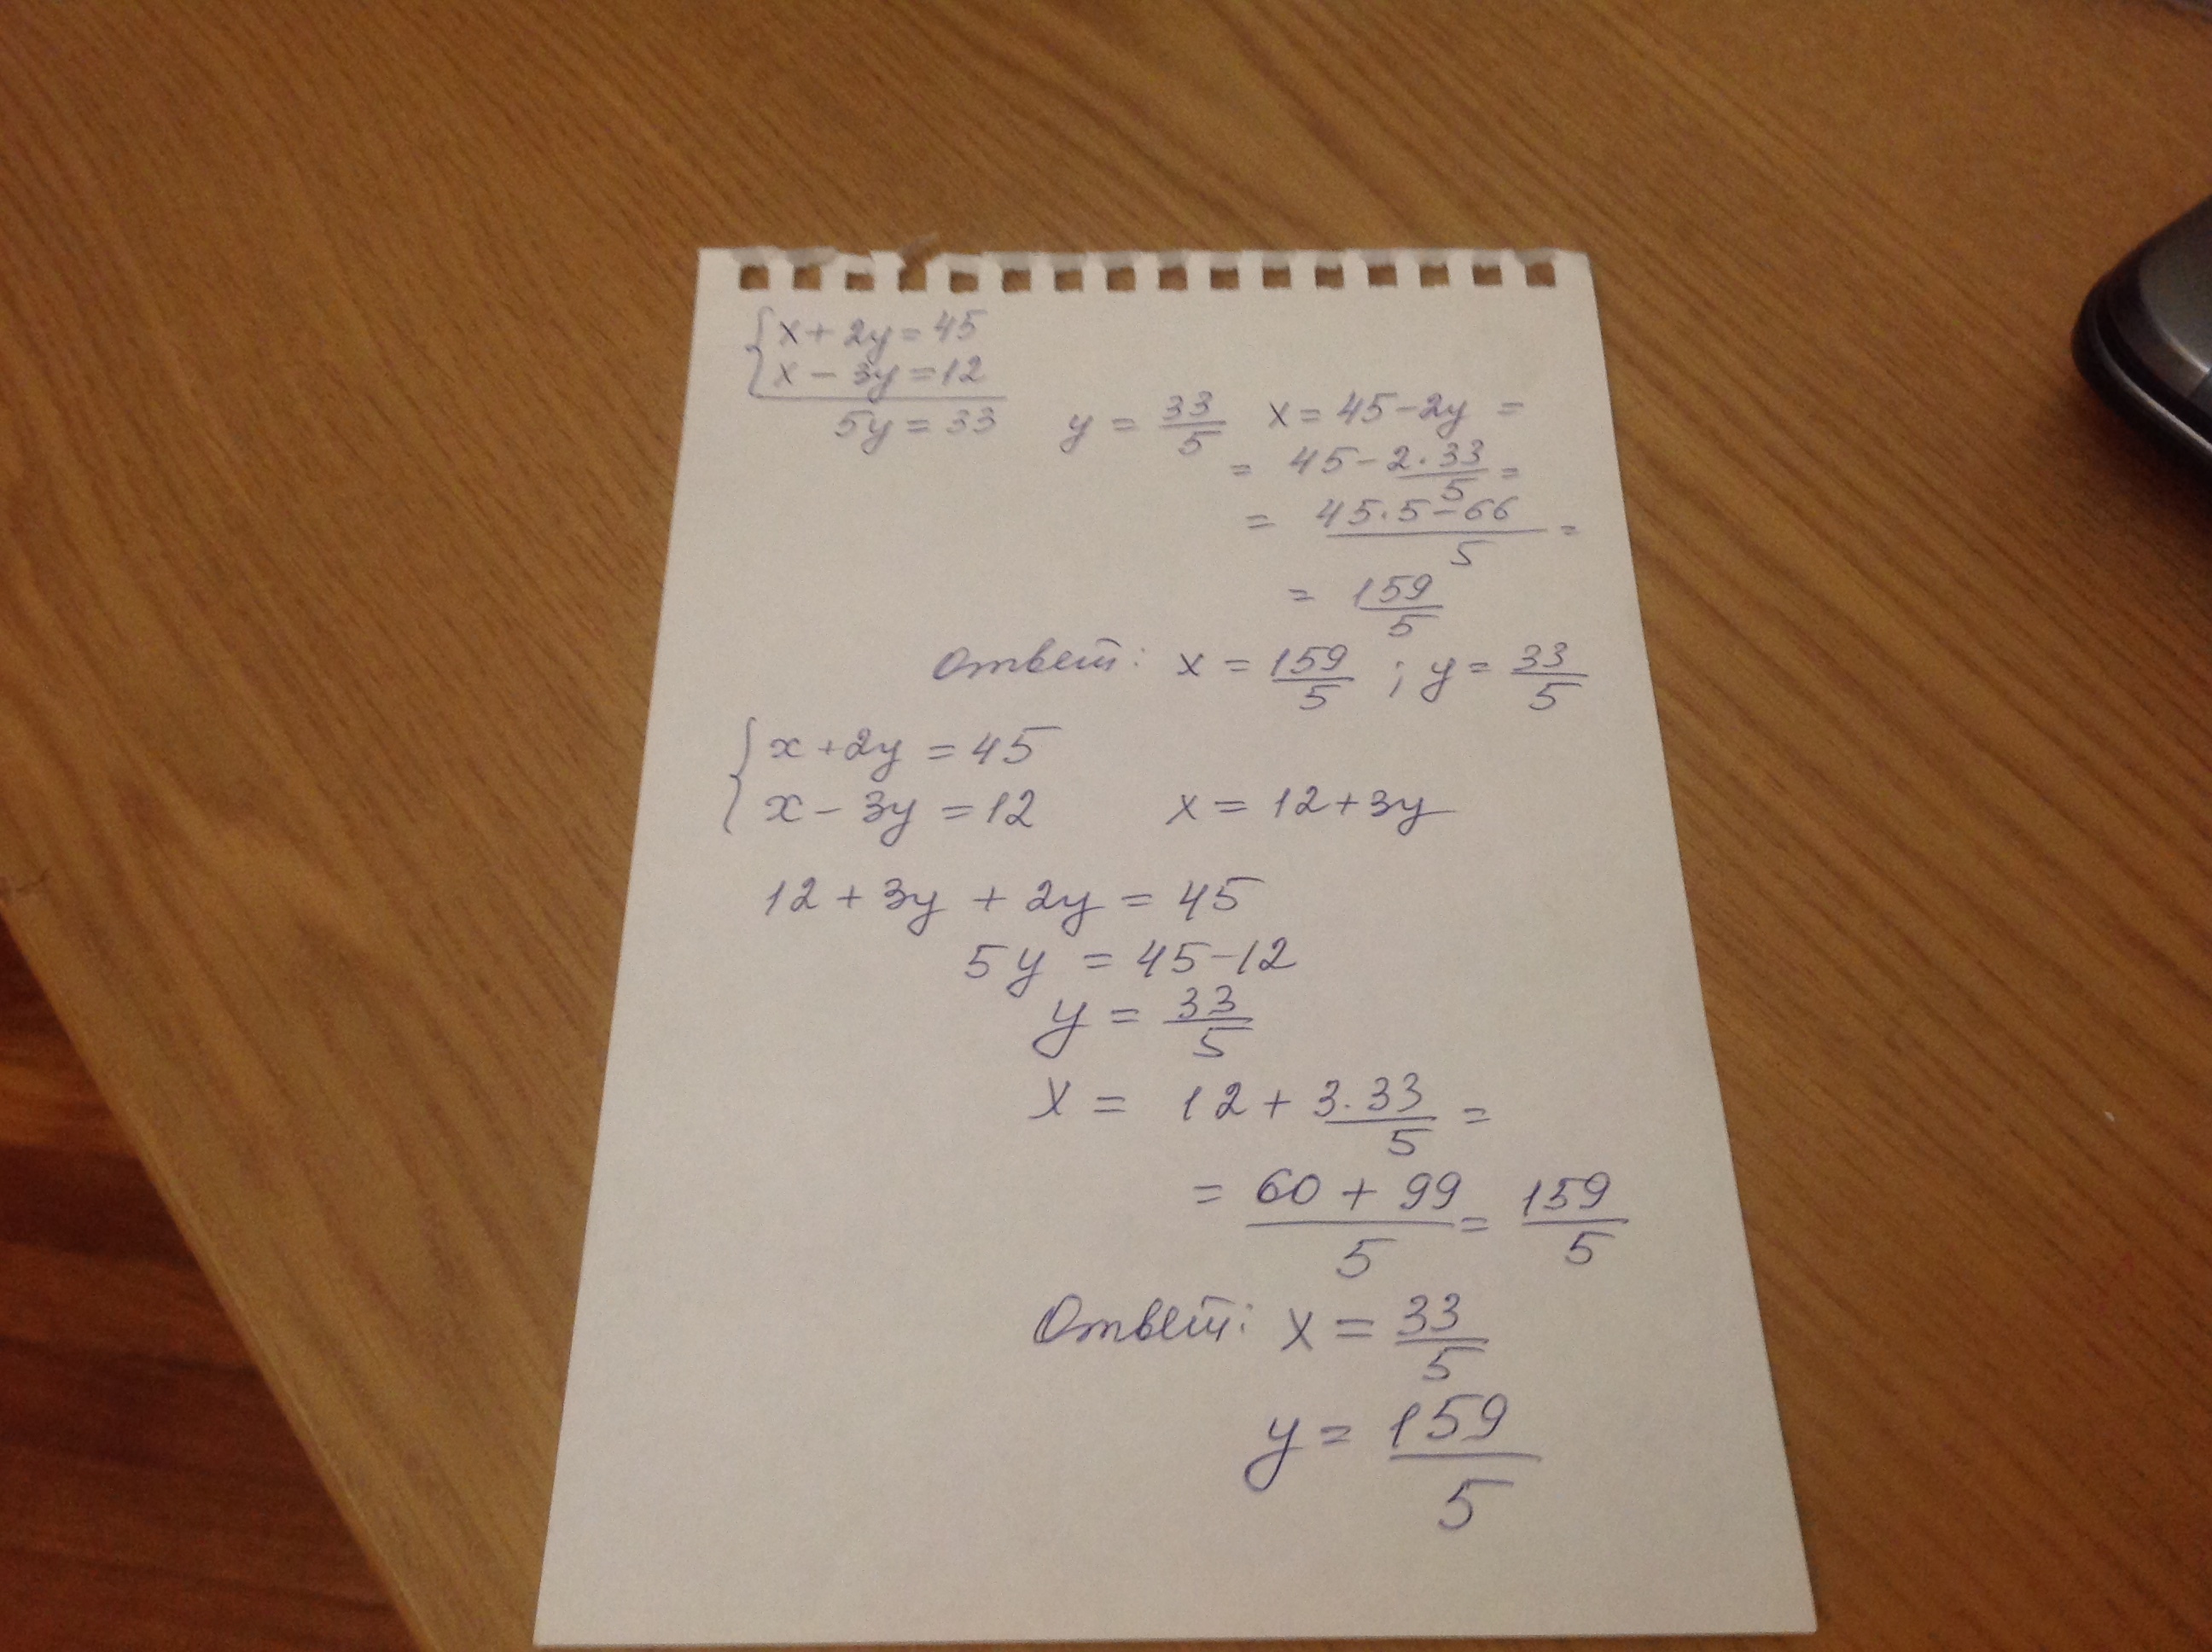 { x + 2y = 45
x - 3y = 12
5y = 33 y = 33/5 x = 45 - 2y =
= 45 - 2·33/5 =
= 45·5 - 66/5 =
= 159/5
Ответ: x = 159/5 ; y = 33/5
{ x + 2y = 45
x - 3y = 12 x = 12 + 3y
12 + 3y + 2y = 45
5y = 45 - 12
y = 33/5
x = 12 + 3·33/5 =
= 60 + 99/5 = 159/5
Ответ: x = 33/5
y = 159/5